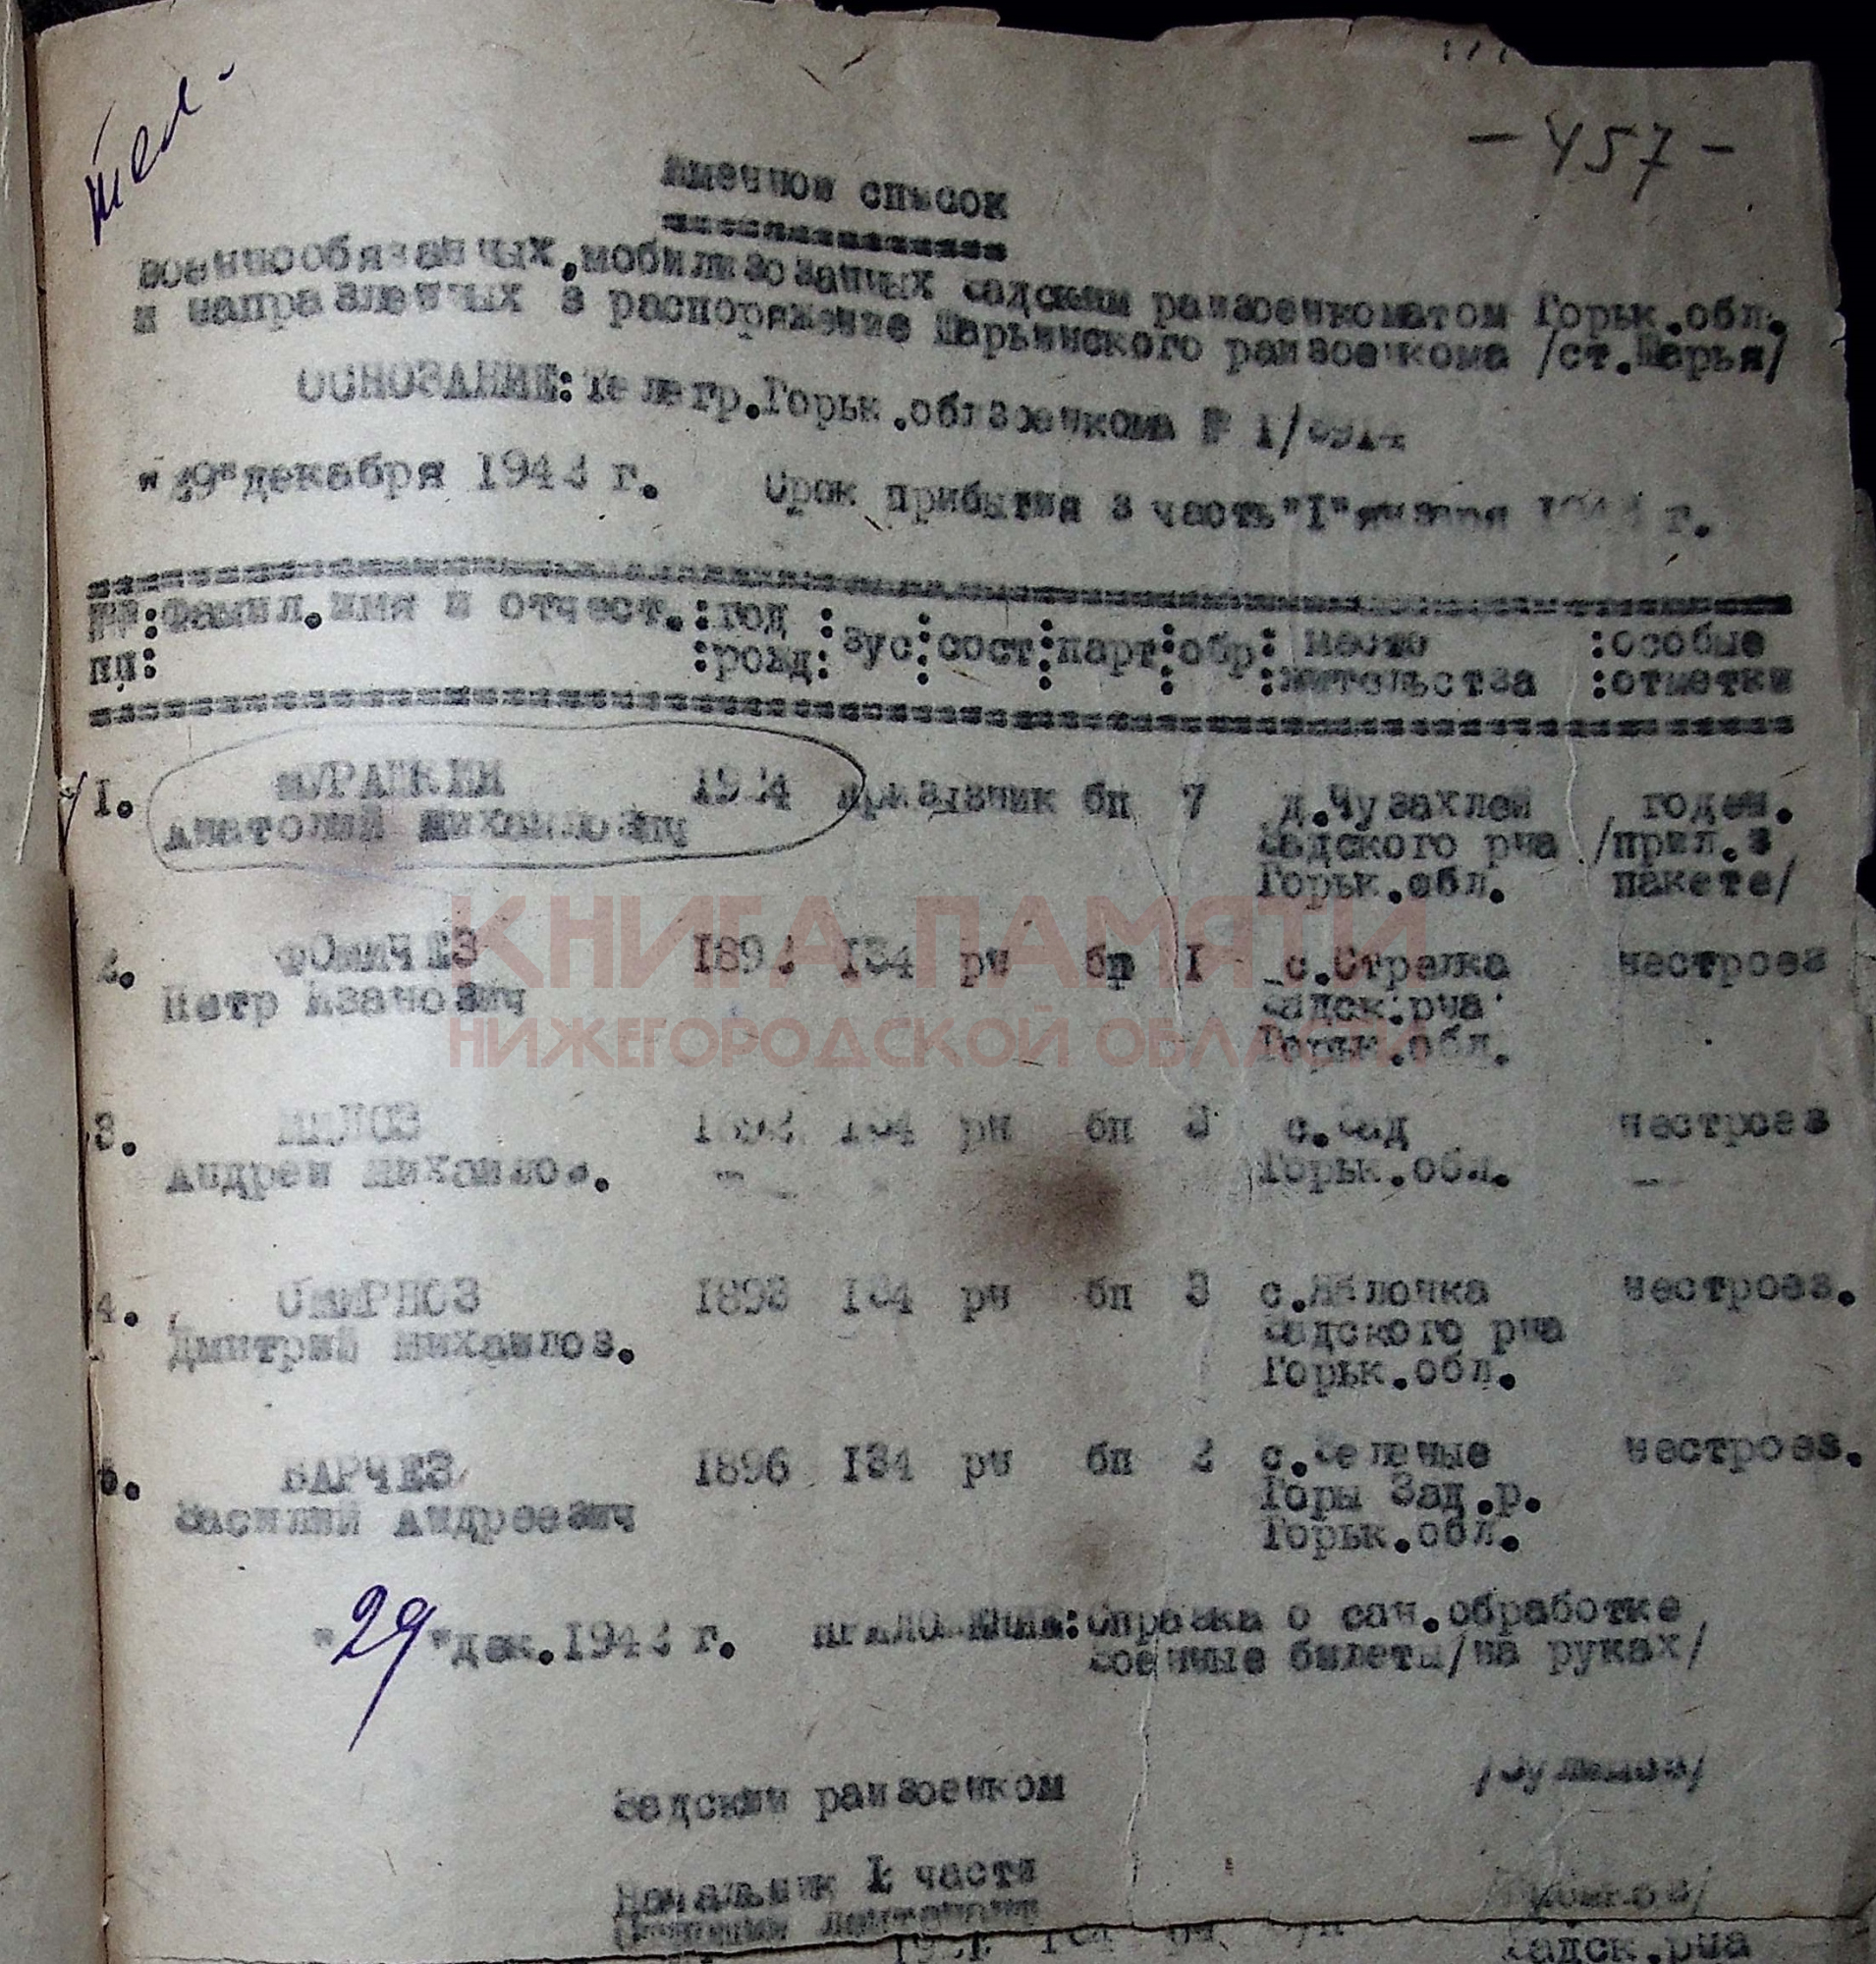 - 457 -
Именной список
военнообязанных, мобилизованных Вадским райвоенкоматом Горьк.обл.
и направленных в распоряжение Шарьинского райвоенкома /ст.Шарья/
ОСНОВАНИЕ: Телегр.Горьк.облвоенкома № 1/
"29" декабря 1942 г. Срок прибытия в часть "I" января г.
№№ : Фамил.имя и отчест. : год : вус : сост : парт : обр : место : особые
пп : : рожд : : жительства : отметки
1. 1924 призывник бп 7 д.Чувахлей годен.
Анатолий Михайлович Вадского рна /прил.в
Горьк.обл. пакете/
КНИГА ПАМЯТИ
2. ФОМИЧЕВ 1892 134 рн бп I с.Стрелка нестроев
Петр Иванович Вадск.рна
НИЖЕГОРОДСКОЙ ОБЛАСТИ
Горьк.обл.
3. 134 рн бп 3 с.Вад нестроев
Андрей Михайлов. Горьк.обл.
4. СМИРНОВ 1893 134 рн бп 3 с.Яблонка нестроев.
Дмитрий Михайлов. Вадского рна
Горьк.обл.
5. 1896 134 рн бп 2 с.Зеленые нестроев.
Василий Андреевич Горы Вад.р.
Горьк.обл.
"29" дек.1942 г. ПРИЛОЖЕНИЕ: Справка о сан.обработке
военные билеты/на руках/
Вадский райвоенком
Начальник I части
лейтенант
Вадск.рна